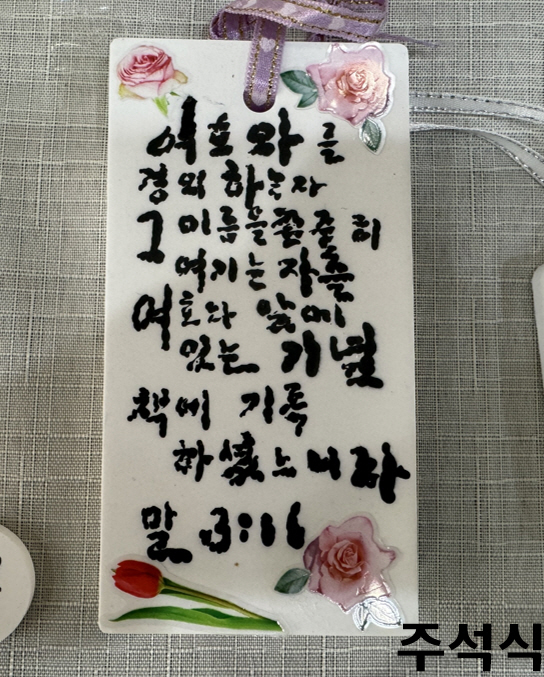 여호와를
경외하는자
그 이름을 존중히
여기는 자를
여호와 앞에
있는 기념
책에 기록
하셨느니라
말 3:16
주석식